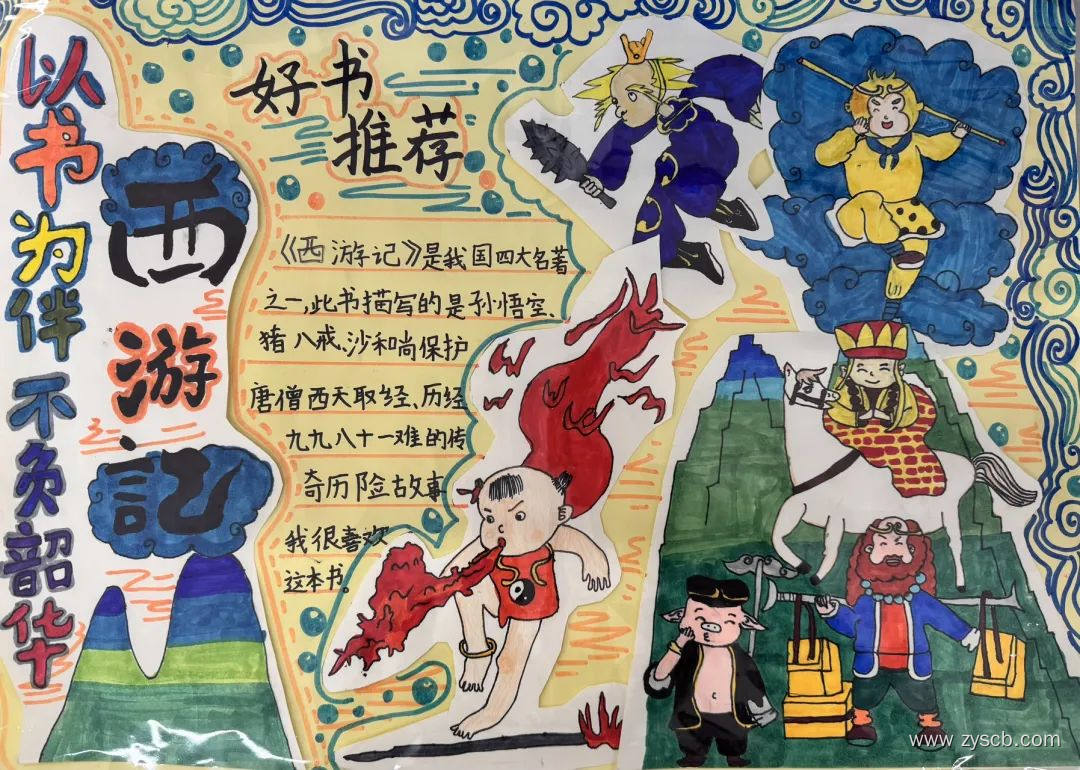 以书为伴 不负韶华
西游记
好书
推荐
《西游记》是我国四大名著
之一,此书描写的是孙悟空、
猪八戒、沙和尚保护
唐僧西天取经、历经
九九八十一难的传
奇历险故事
我很喜欢
这本书。
www.zyscb.com